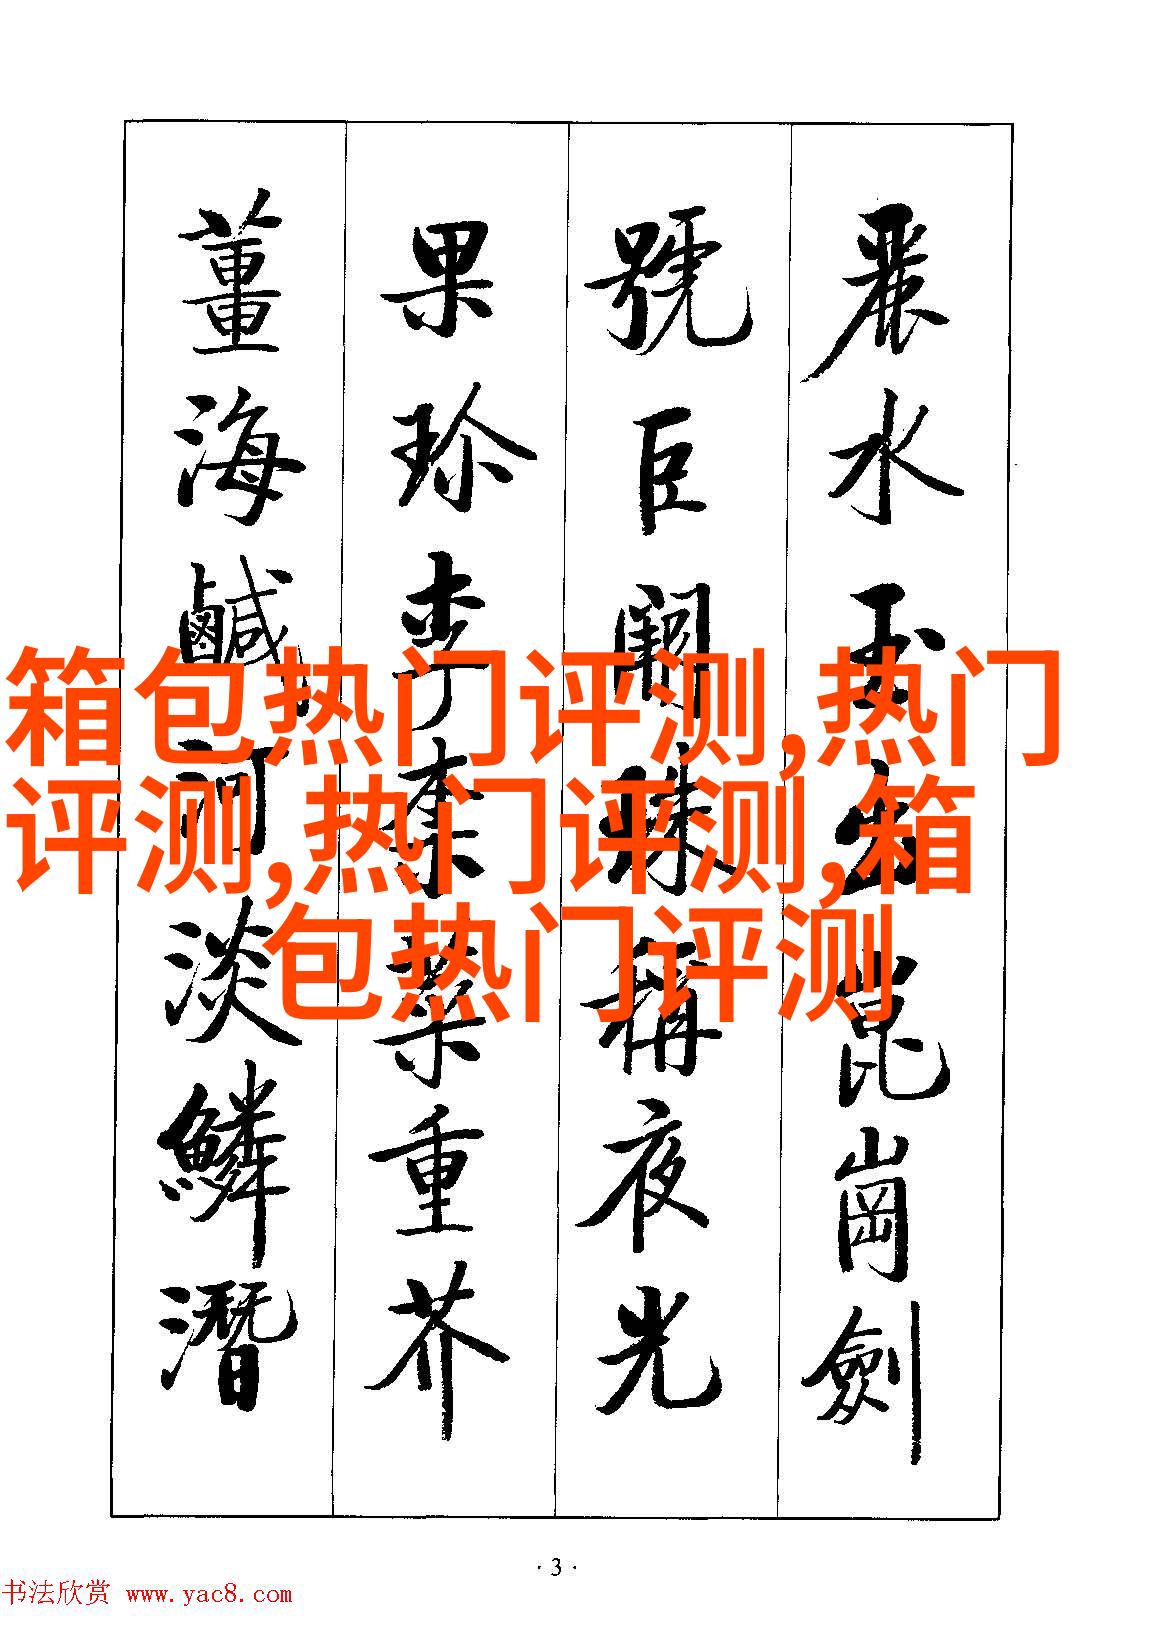 麗水玉出崑崗劍
號巨闕珠稱夜光
果珍李柰菜重芥
薑海鹹河淡鱗潛
箱包热门评测,热门
评测,热门评测,箱
包热门评测
· 3 ·
书法欣赏 www.yac8.com